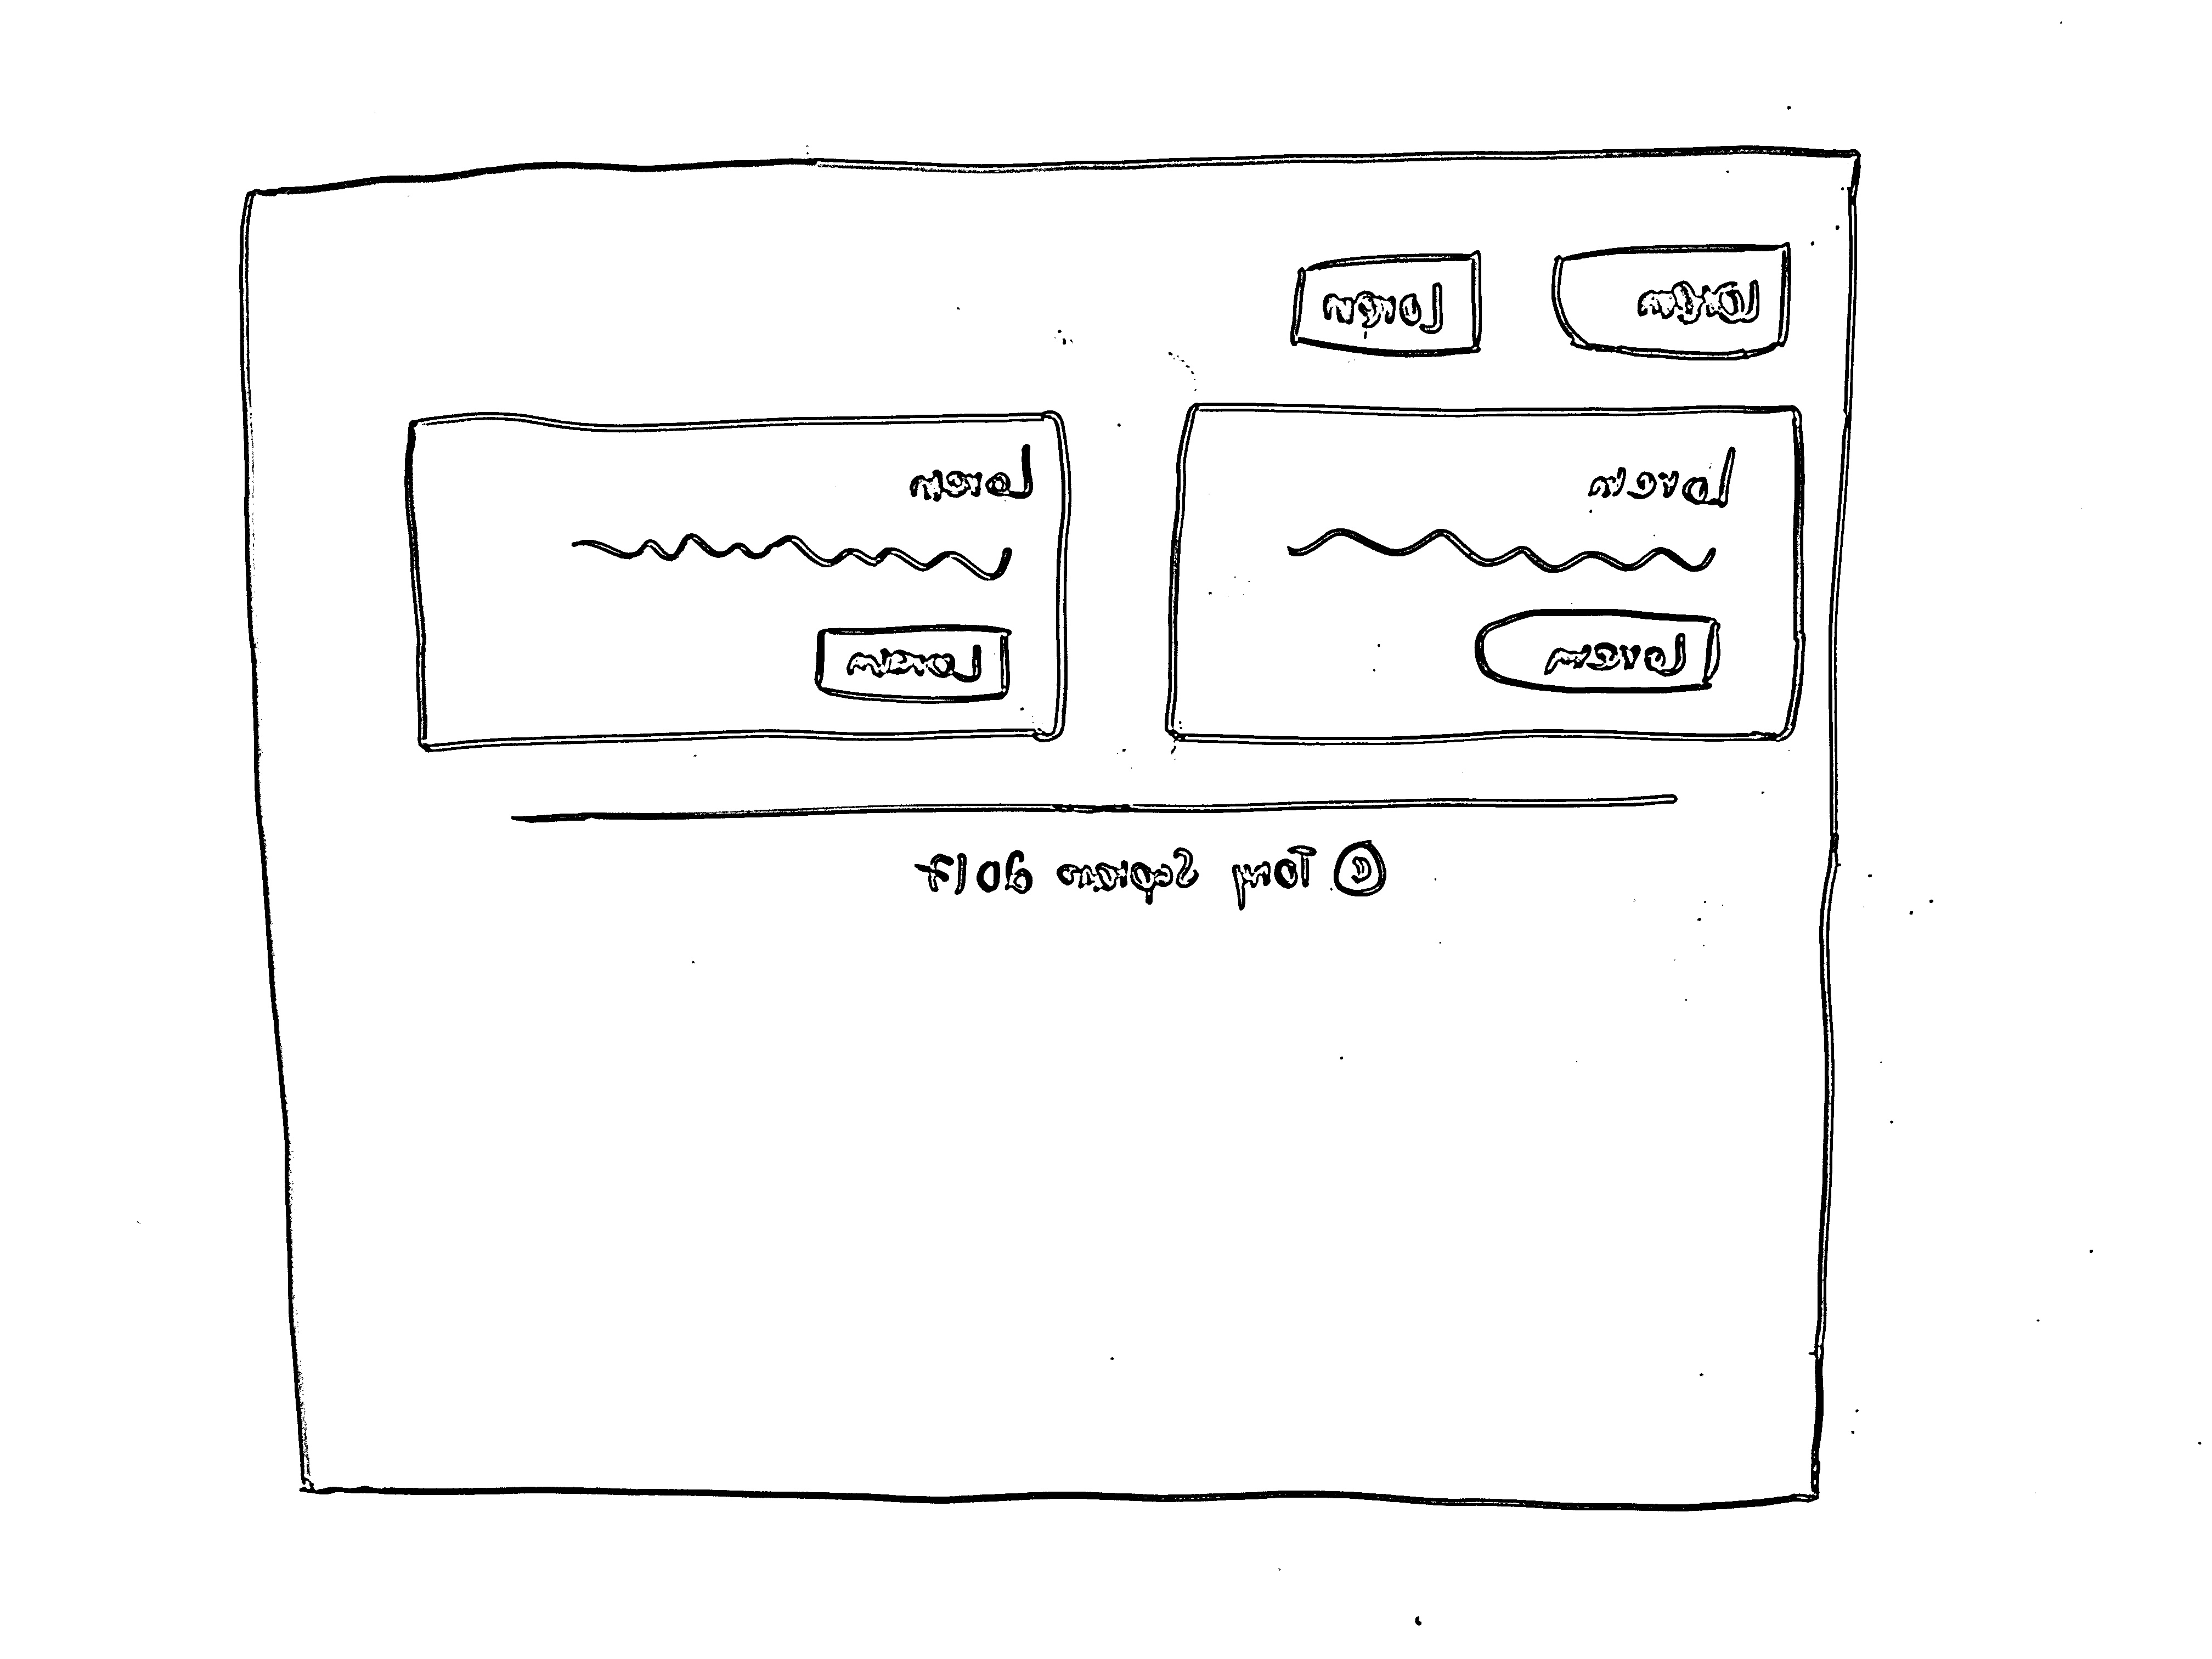 Lorem Lorem
Lorem
Lorem
Lorem
Lorem
© Tony Soprano 2017